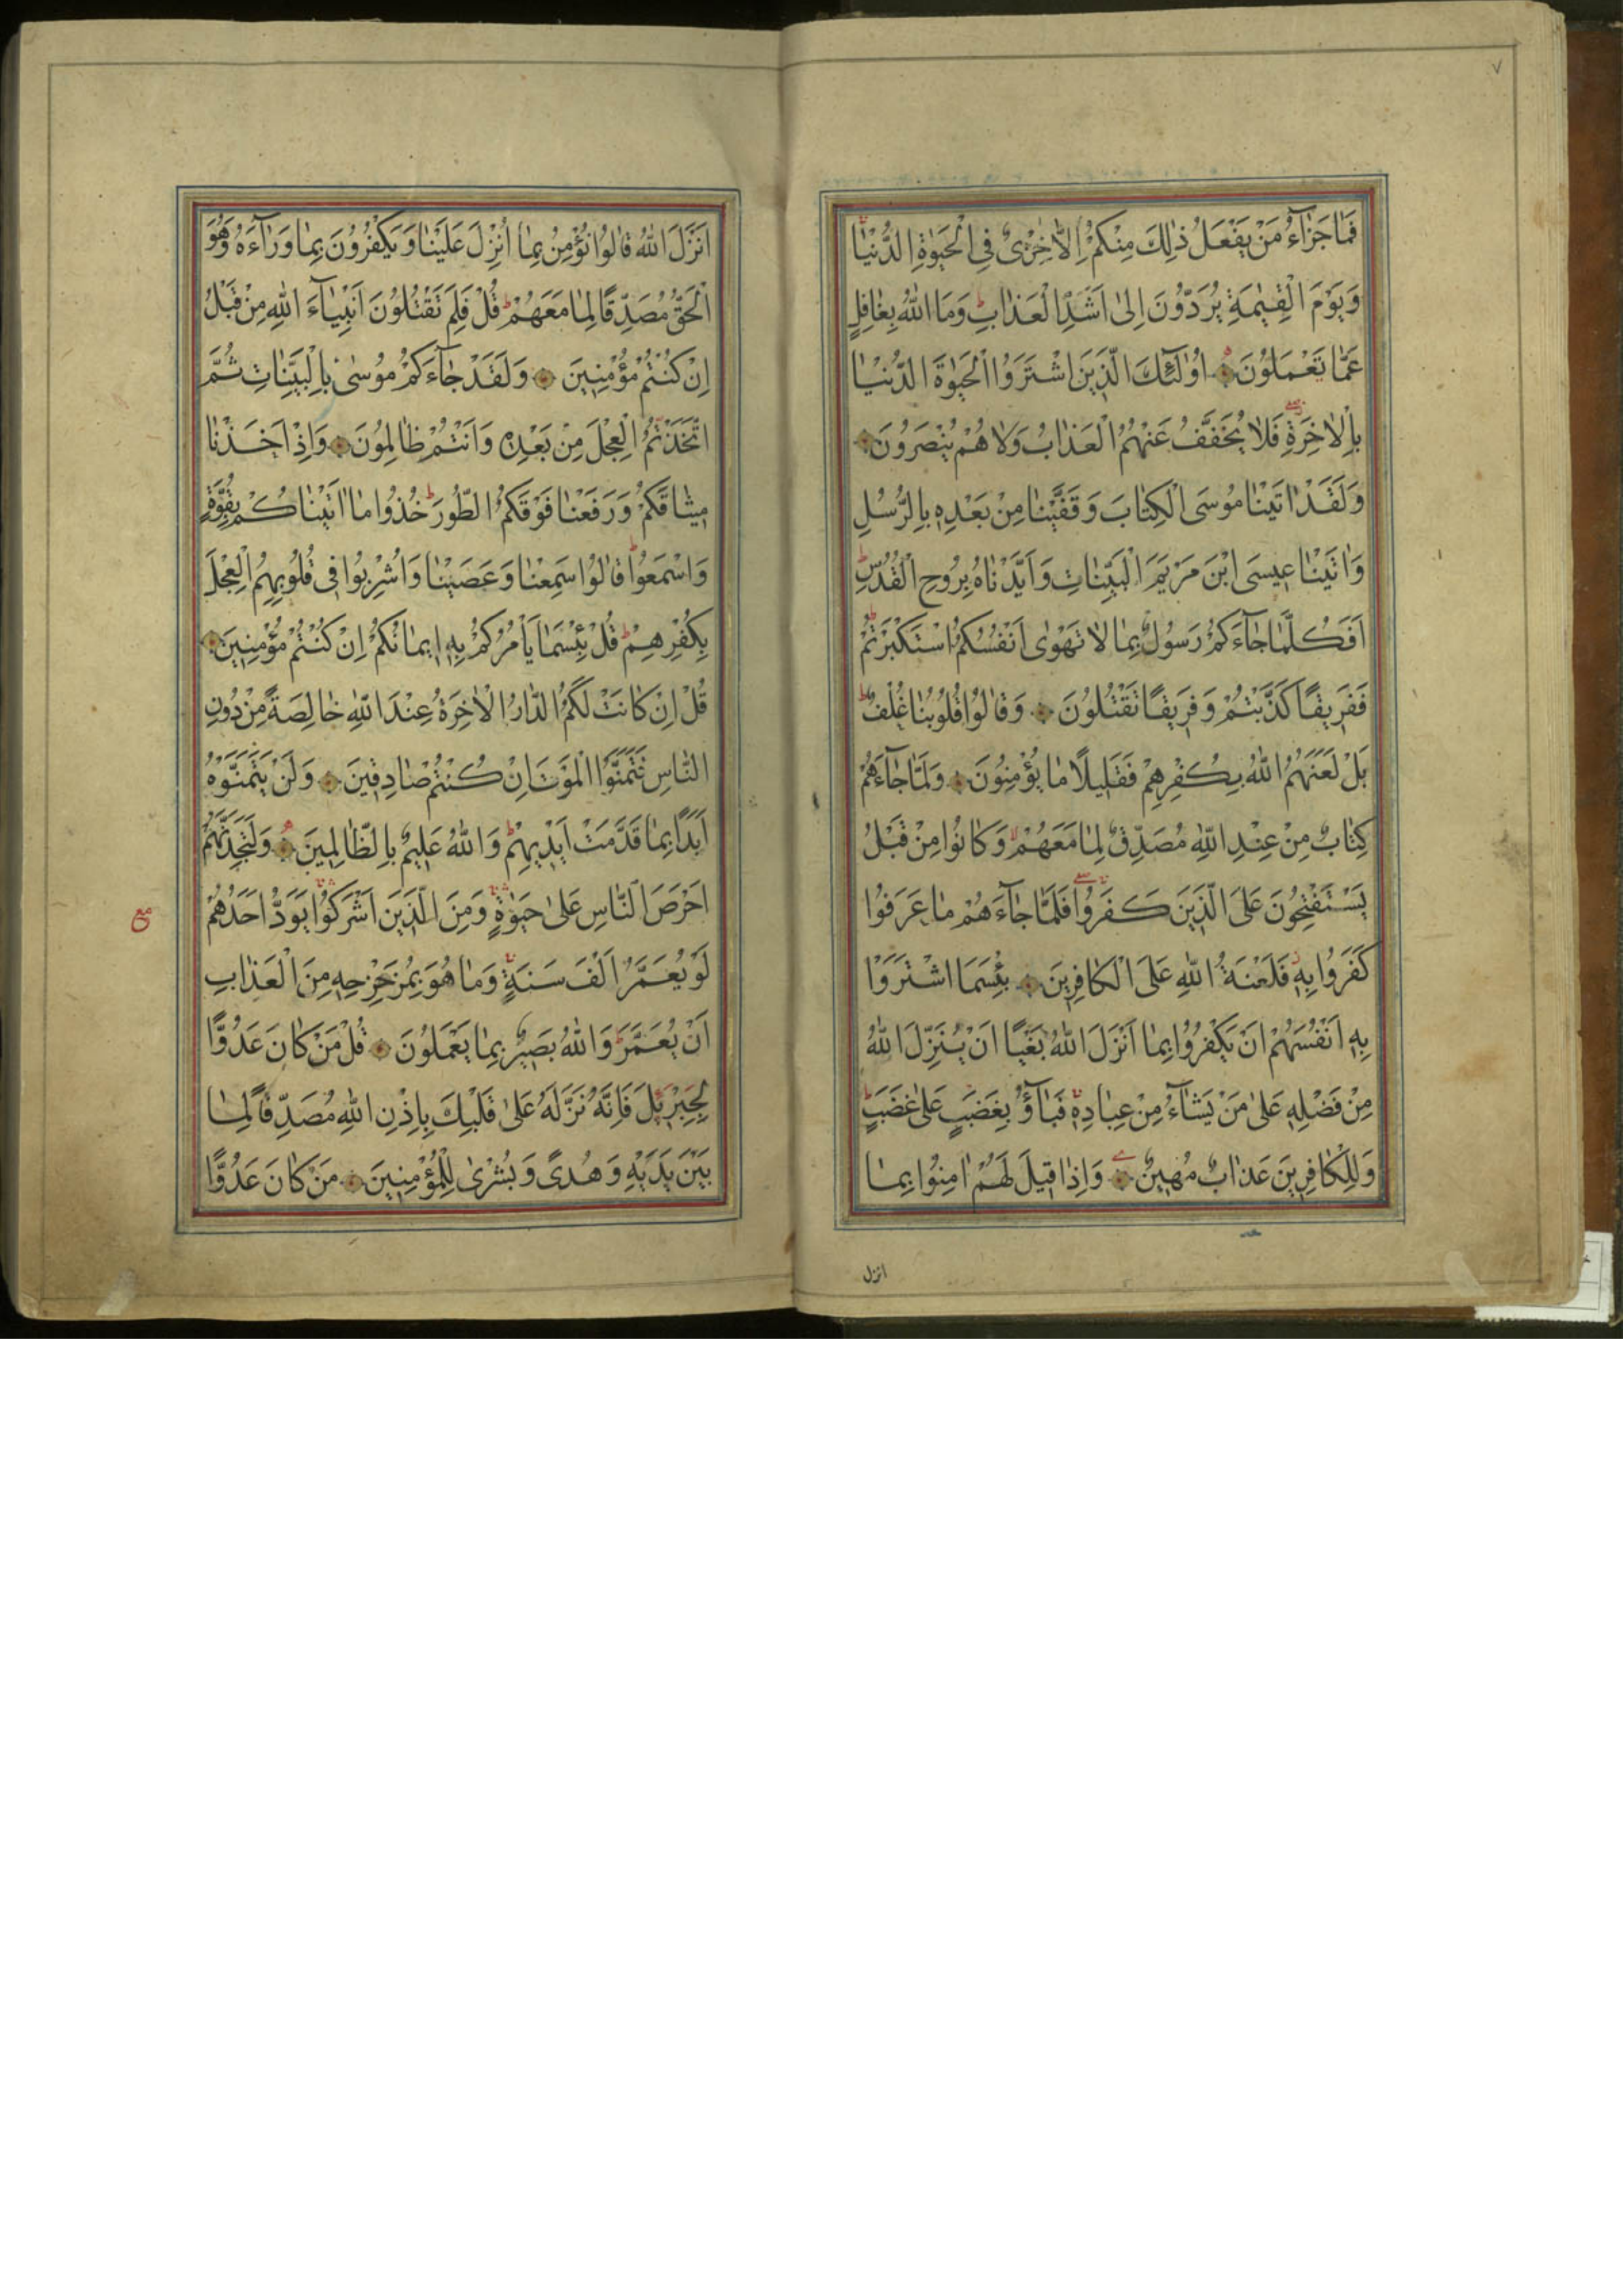 ٧
فَمَا جَزَآءُ مَنْ يَفْعَلُ ذٰلِكَ مِنْكُمْ اِلَّا خِزْىٌ فِى الْحَيٰوةِ الدُّنْيَا
وَيَوْمَ الْقِيٰمَةِ يُرَدُّونَ اِلىٰ اَشَدِّ الْعَذَابِ وَمَا اللّٰهُ بِغَافِلٍ
عَمَّا تَعْمَلُونَ اُولٰئِكَ الَّذِينَ اشْتَرَوُا الْحَيٰوةَ الدُّنْيَا
بِالْاٰخِرَةِ فَلَا يُخَفَّفُ عَنْهُمُ الْعَذَابُ وَلَا هُمْ يُنْصَرُونَ
وَلَقَدْ اٰتَيْنَا مُوسَى الْكِتَابَ وَقَفَّيْنَا مِنْ بَعْدِهِ بِالرُّسُلِ
وَاٰتَيْنَا عِيسَى ابْنَ مَرْيَمَ الْبَيِّنَاتِ وَاَيَّدْنَاهُ بِرُوحِ الْقُدُسِ
اَفَكُلَّمَا جَآءَكُمْ رَسُولٌ بِمَا لَا تَهْوٰى اَنْفُسُكُمُ اسْتَكْبَرْتُمْ
فَفَرِيقًا كَذَّبْتُمْ وَفَرِيقًا تَقْتُلُونَ وَقَالُوا قُلُوبُنَا غُلْفٌ
بَلْ لَعَنَهُمُ اللّٰهُ بِكُفْرِهِمْ فَقَلِيلًا مَا يُؤْمِنُونَ وَلَمَّا جَآءَهُمْ
كِتَابٌ مِنْ عِنْدِ اللّٰهِ مُصَدِّقٌ لِمَا مَعَهُمْ وَكَانُوا مِنْ قَبْلُ
يَسْتَفْتِحُونَ عَلَى الَّذِينَ كَفَرُوا فَلَمَّا جَآءَهُمْ مَا عَرَفُوا
كَفَرُوا بِهِ فَلَعْنَةُ اللّٰهِ عَلَى الْكَافِرِينَ بِئْسَمَا اشْتَرَوْا
بِهِ اَنْفُسَهُمْ اَنْ يَكْفُرُوا بِمَا اَنْزَلَ اللّٰهُ بَغْيًا اَنْ يُنَزِّلَ اللّٰهُ
مِنْ فَضْلِهِ عَلىٰ مَنْ يَشَآءُ مِنْ عِبَادِهِ فَبَآؤُ بِغَضَبٍ عَلىٰ غَضَبٍ
وَلِلْكَافِرِينَ عَذَابٌ مُهِينٌ وَاِذَا قِيلَ لَهُمْ اٰمِنُوا بِمَا
انزل
اَنْزَلَ اللّٰهُ قَالُوا نُؤْمِنُ بِمَا اُنْزِلَ عَلَيْنَا وَيَكْفُرُونَ بِمَا وَرَآءَهُ وَهُوَ
الْحَقُّ مُصَدِّقًا لِمَا مَعَهُمْ قُلْ فَلِمَ تَقْتُلُونَ اَنْبِيَآءَ اللّٰهِ مِنْ قَبْلُ
اِنْ كُنْتُمْ مُؤْمِنِينَ وَلَقَدْ جَآءَكُمْ مُوسىٰ بِالْبَيِّنَاتِ ثُمَّ
اتَّخَذْتُمُ الْعِجْلَ مِنْ بَعْدِهِ وَاَنْتُمْ ظَالِمُونَ وَاِذْ اَخَذْنَا
مِيثَاقَكُمْ وَرَفَعْنَا فَوْقَكُمُ الطُّورَ خُذُوا مَا اٰتَيْنَاكُمْ بِقُوَّةٍ
وَاسْمَعُوا قَالُوا سَمِعْنَا وَعَصَيْنَا وَاُشْرِبُوا فِى قُلُوبِهِمُ الْعِجْلَ
بِكُفْرِهِمْ قُلْ بِئْسَمَا يَأْمُرُكُمْ بِهِ اِيمَانُكُمْ اِنْ كُنْتُمْ مُؤْمِنِينَ
قُلْ اِنْ كَانَتْ لَكُمُ الدَّارُ الْاٰخِرَةُ عِنْدَ اللّٰهِ خَالِصَةً مِنْ دُونِ
النَّاسِ فَتَمَنَّوُا الْمَوْتَ اِنْ كُنْتُمْ صَادِقِينَ وَلَنْ يَتَمَنَّوْهُ
اَبَدًا بِمَا قَدَّمَتْ اَيْدِيهِمْ وَاللّٰهُ عَلِيمٌ بِالظَّالِمِينَ وَلَتَجِدَنَّهُمْ
اَحْرَصَ النَّاسِ عَلىٰ حَيٰوةٍ وَمِنَ الَّذِينَ اَشْرَكُوا يَوَدُّ اَحَدُهُمْ
مع
لَوْ يُعَمَّرُ اَلْفَ سَنَةٍ وَمَا هُوَ بِمُزَحْزِحِهِ مِنَ الْعَذَابِ
اَنْ يُعَمَّرَ وَاللّٰهُ بَصِيرٌ بِمَا يَعْمَلُونَ قُلْ مَنْ كَانَ عَدُوًّا
لِجِبْرِيلَ فَاِنَّهُ نَزَّلَهُ عَلىٰ قَلْبِكَ بِاِذْنِ اللّٰهِ مُصَدِّقًا لِمَا
بَيْنَ يَدَيْهِ وَهُدًى وَبُشْرىٰ لِلْمُؤْمِنِينَ مَنْ كَانَ عَدُوًّا